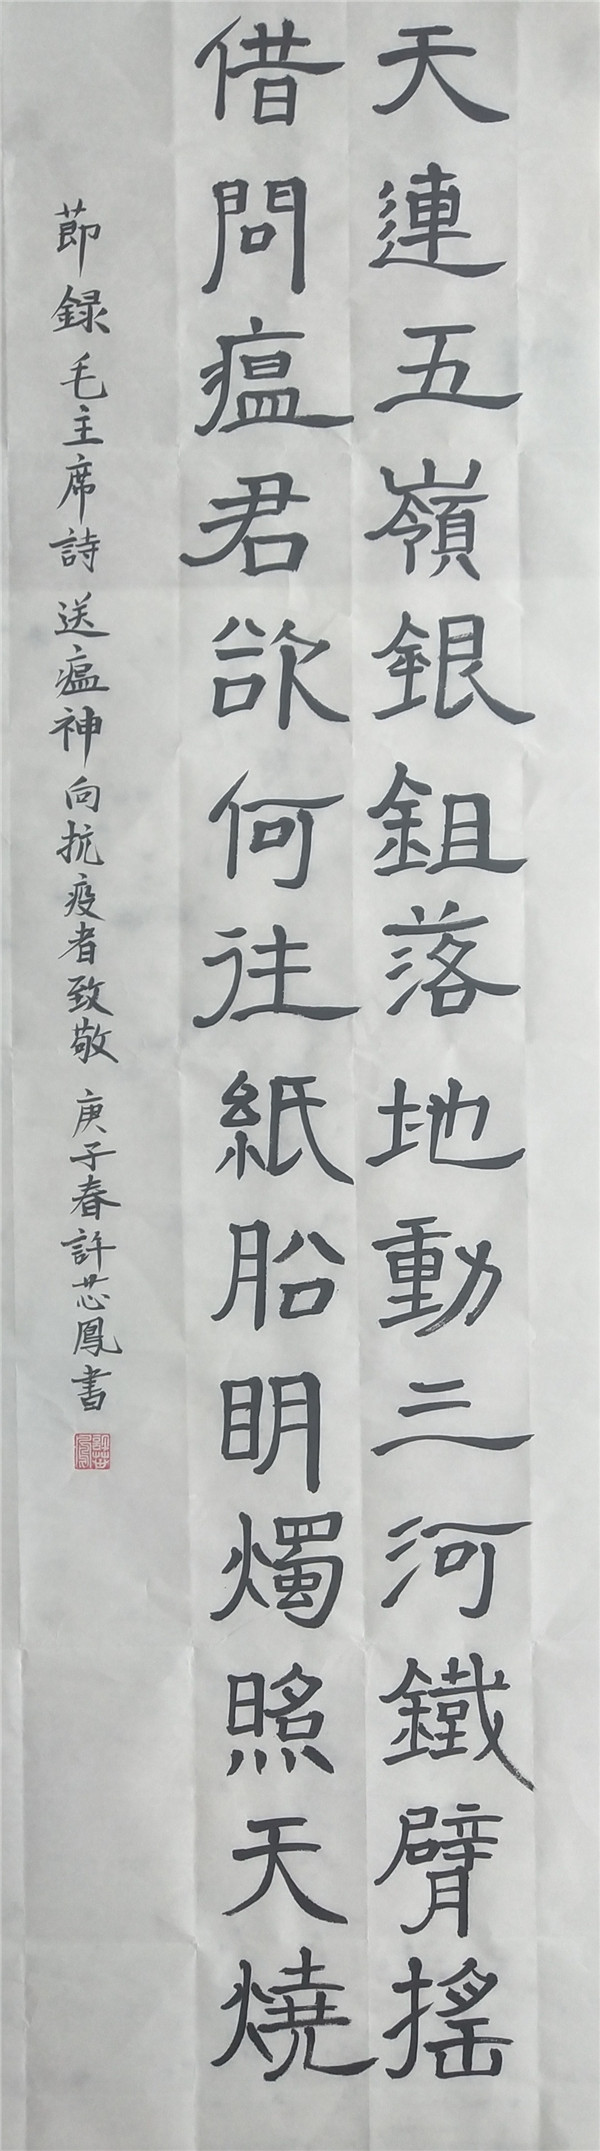 天連五嶺銀鉏落地動三河鐵臂搖
借問瘟君欲何往紙船明燭照天燒
節錄毛主席詩送瘟神向抗疫者致敬庚子春許芯鳳書